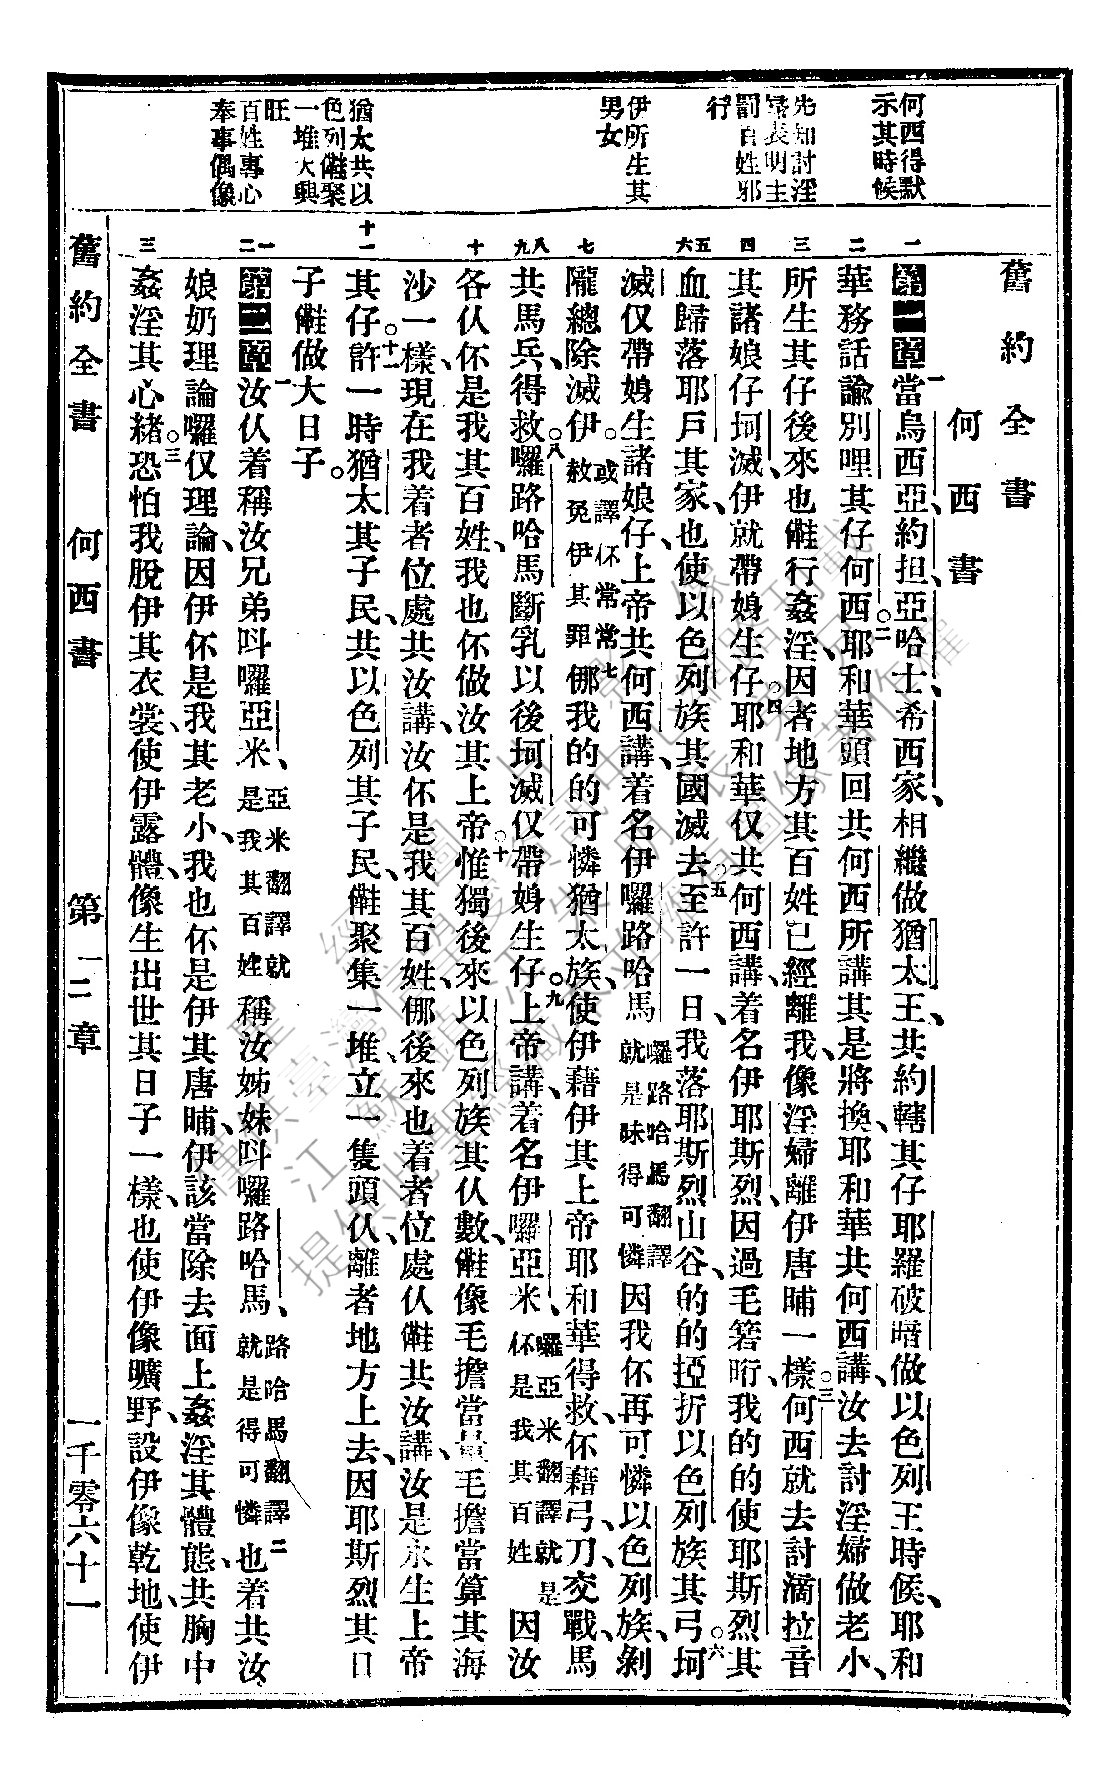 舊約全書
何西書
何西得默
示其時候
先知討淫
婦表明主
罰百姓邪
行
伊所生其
男女
猶太共以
色列㑚聚
一堆大興
旺
百姓專心
奉事偶像
一
二
三
四
五六
七
八九
十
十一
一二
三
第一章 一當烏西亞、約担、亞哈士、希西家、相繼做猶太王、共約轄其仔耶羅破暗做以色列王時候、耶和
華務話諭別哩其仔何西。○二耶和華頭回共何西所講其是將換、耶和華共何西講、汝去討淫婦做老小、
所生其仔後來也㑚行姦淫、因者地方其百姓已經離我、像淫婦離伊唐晡一樣。○三何西就去討滴拉音
其諸娘仔坷滅、伊就帶㛮生仔。○四耶和華仅共何西講、着名伊耶斯烈、因過毛簭𣍐、我的的使耶斯烈其
血歸落耶戶其家、也使以色列族其國滅去。○五至許一日、我落耶斯烈山谷、的的挜折以色列族其弓。○六坷
滅仅帶㛮生諸娘仔、上帝共何西講、着名伊囉路哈馬 囉路哈馬翻譯就是昧得可憐 因我伓再可憐以色列族、剝
隴總除滅伊。或譯伓常常赦免伊其罪 七㑚我的的可憐猶太族、使伊藉伊其上帝耶和華得救、伓藉弓、刀、交戰、馬
共馬兵、得救。○八囉路哈馬斷乳以後、坷滅仅帶㛮生仔。○九上帝講、着名伊囉亞米、囉亞米翻譯就是伓是我其百姓 因汝
各仈伓是我其百姓、我也伓做汝其上帝。○十惟獨後來以色列族其仈數、㑚像毛擔當量毛擔當算其海
沙一樣、現在我着者位處共汝講、汝伓是我其百姓、㑚後來也着者位處仈㑚共汝講、汝是永生上帝
其仔。○十一許一時猶太其子民、共以色列其子民、㑚聚集一堆、立一隻頭仈、離者地方上去、因耶斯烈其日
子㑚做大日子。
第二章 一汝仈着稱汝兄弟呌囉亞米、亞米翻譯就是我其百姓 稱汝姊妹呌囉路哈馬、路哈馬翻譯就是得可憐 二也着共汝
娘奶理論囉仅理論、因伊伓是我其老小、我也伓是伊其唐晡、伊該當除去面上姦淫其體態、共胸中
姦淫其心緒。○三恐怕我脫伊其衣裳、使伊露體、像生出世其日子一樣、也使伊像曠野、設伊像乾地、使伊
舊約全書 何西書 第一二章 一千零六十一